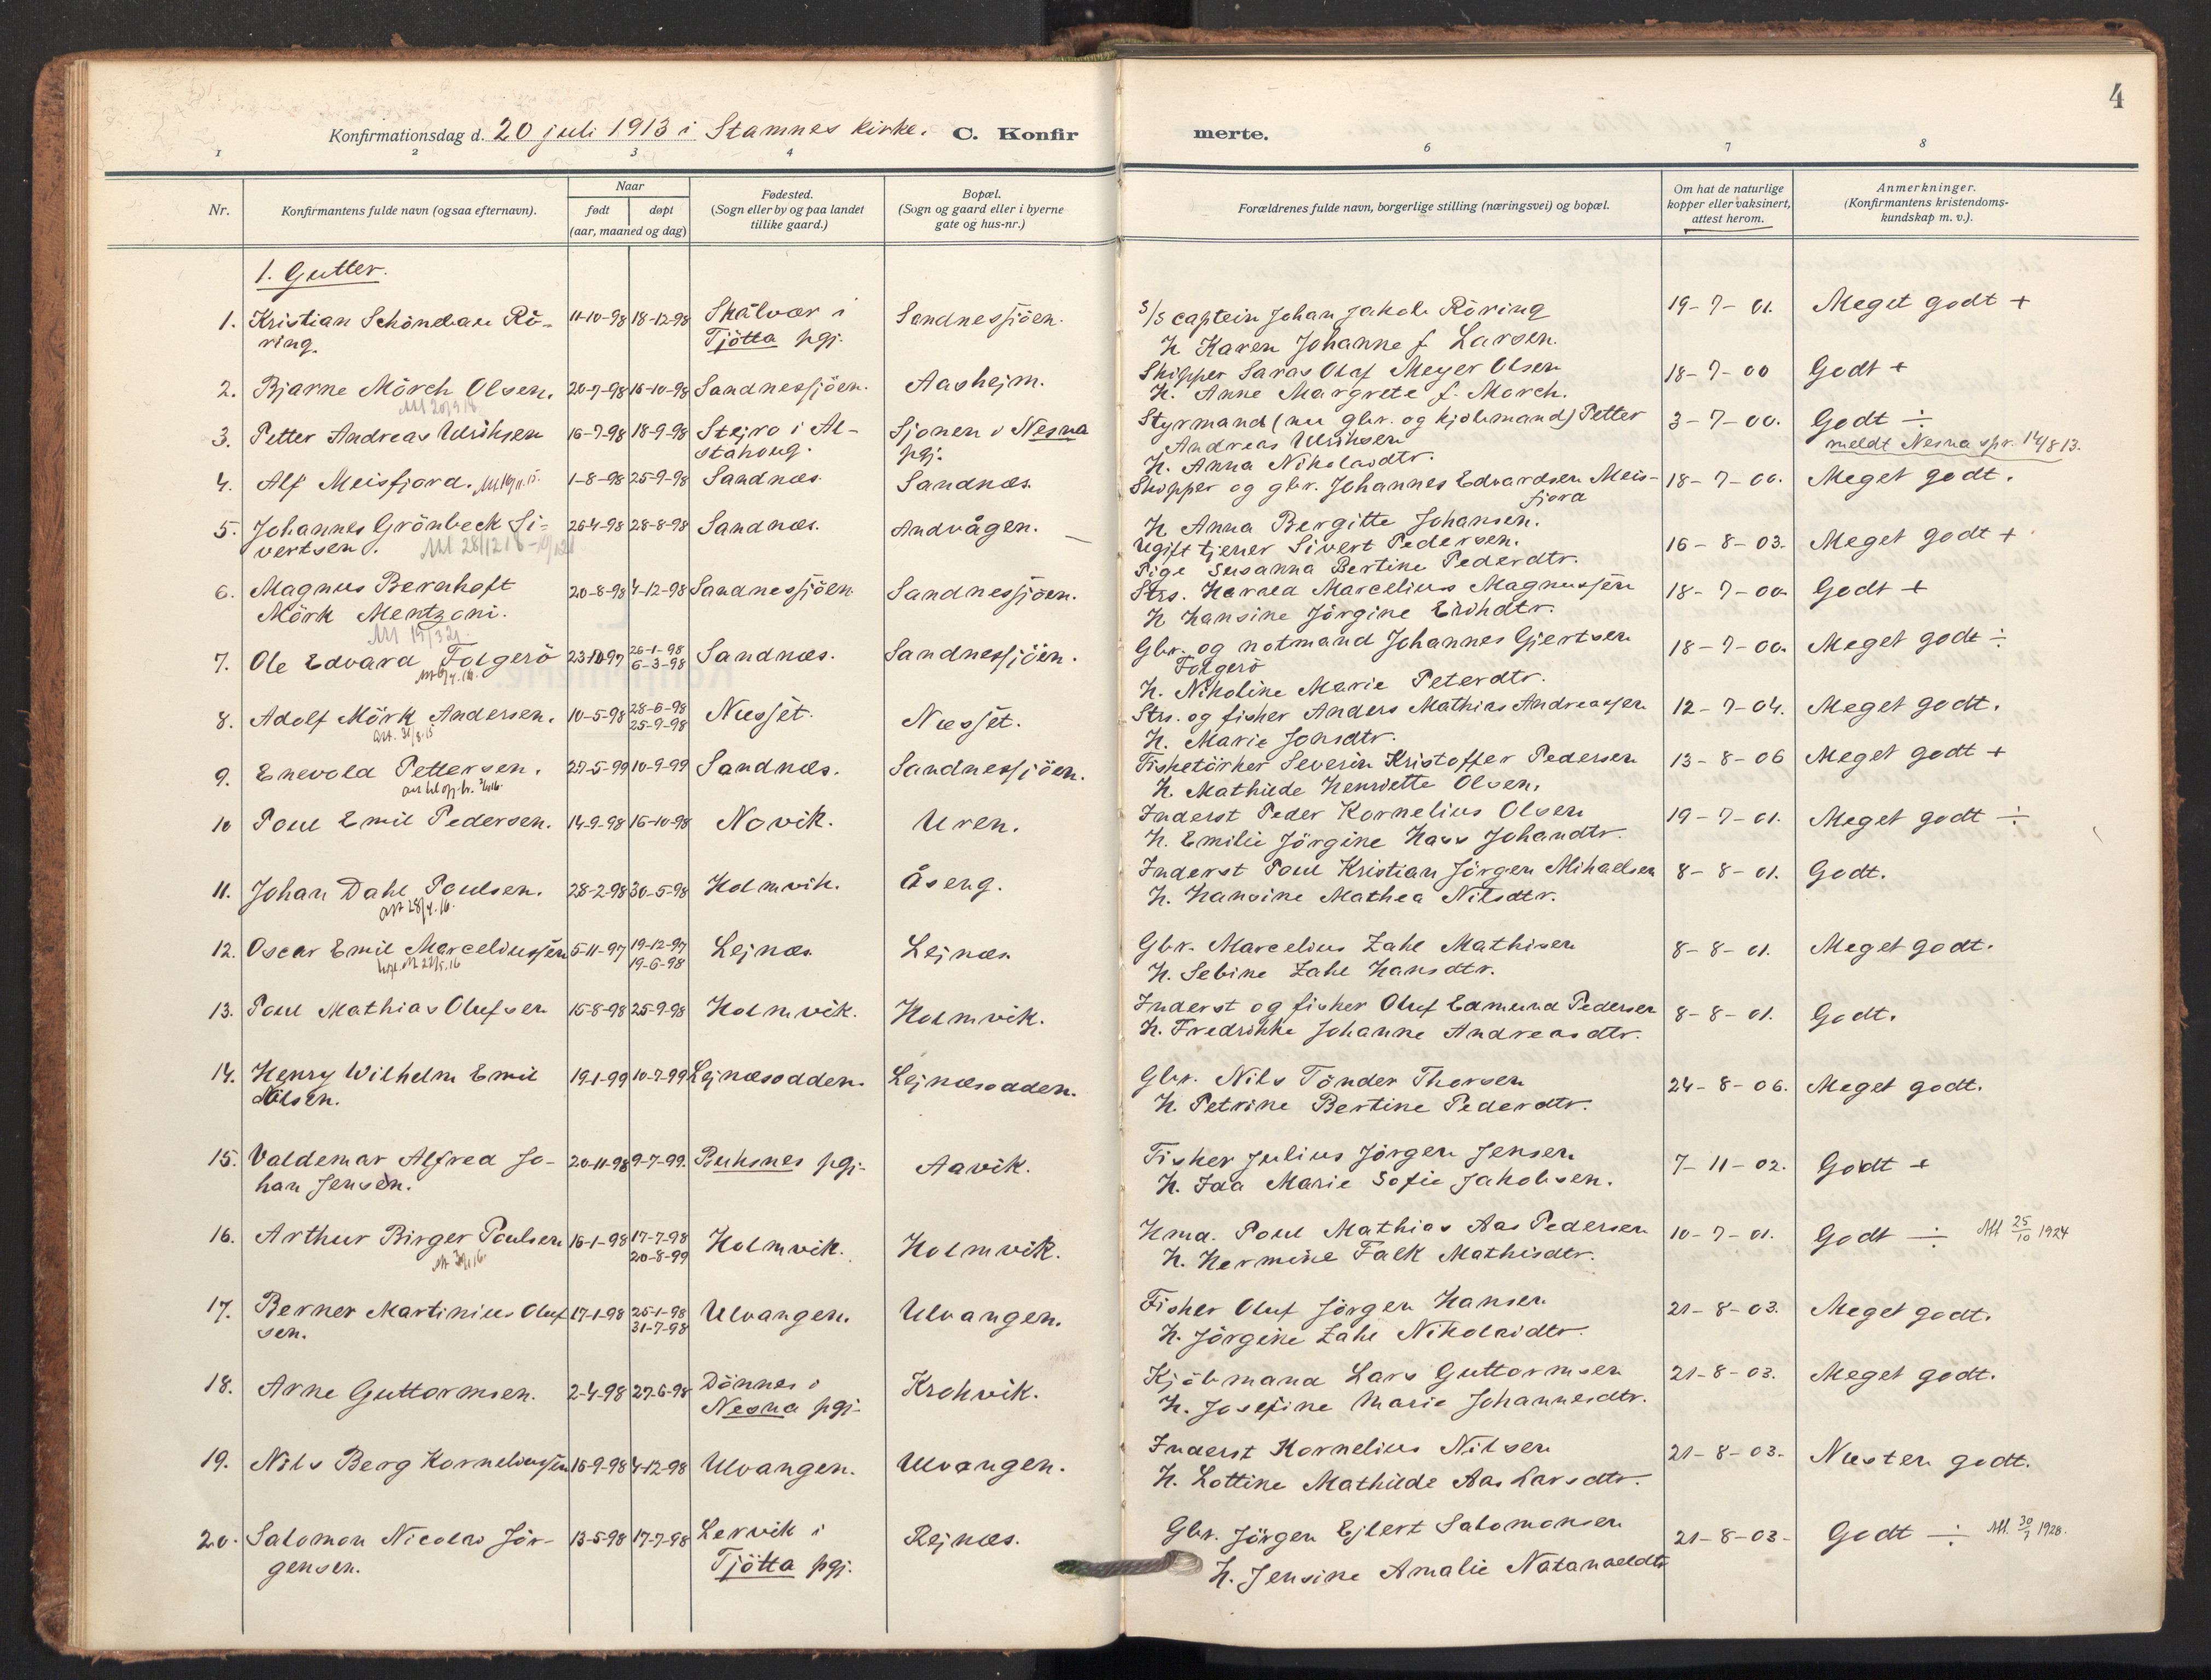 4
Konfirmationsdag d. 20 juli 1913 i Stamnes kirke. C. Konfir merte.
1 2 3 4 6 7 8
Nr.
Konfirmantens fulde navn (ogsaa efternavn).
Naar
født døpt
(aar, maaned og dag)
Fødested.
(Sogn eller by og paa landet
tillike gaard.)
Bopæl.
(Sogn og gaard eller i byerne
gate og hus-nr.)
Forældrenes fulde navn, borgerlige stilling (næringsvei) og bopæl.
Om hat de naturlige
kopper eller vaksinert,
attest herom.
Anmerkninger.
(Konfirmantens kristendoms-
kundskap m. v.).
1. Gutter.
1. Kristian Schöndahl Rö- 11-10-98 18-12-98 Skålvær i Sandnessjöen. S/S captein Johan Jakob Röring 19-7-01. Meget godt +
ring. Tjötta pgj. H. Karen Johanne f. Larsen.
2. Bjarne Mörch Olsen. 20-7-98 16-10-98 Sandnessjöen. Aasheim. Skipper Saras Olaf Meyer Olsen 18-7-00 Godt +
H. Anne Margrete f. Mörch.
3. Petter Andreas Ulriksen 16-7-98 18-9-98 Stejro i Al- Sjonen i Nesna Styrmand (nu gbr. og kjöbmand) Petter 3-7-00. Godt ÷
stahoug. pgj. Andreas Ulriksen meldt Nesna spr. 14/8 13.
H. Anna Nikolaidtr.
4. Alf Meisfjord. 1-8-98 25-9-98 Sandnæs. Sandnæs. Skipper og gbr. Johannes Edvardsen Meis- 18-7-00. Meget godt.
fjord
H. Anna Bergitte Johansen.
5. Johannes Grönbeck Si- 26-4-98 28-8-98 Sandnæs. Andvågen. Ugift tjener Sivert Pedersen. 16-8-03. Meget godt +
vertsen. Pige Susanna Bertine Pedersdtr.
6. Magnus Bernhoft 20-8-98 4-12-98 Sandnessjöen. Sandnessjöen. Strs. Harald Marcelius Magnussen 18-7-00 Godt +
Mörk Mentzoni. H. Hansine Jörgine Erikdtr.
7. Ole Edvard Folgerö 23-10-97 26-1-98 6-3-98 Sandnæs. Sandnessjöen. Gbr. og notmand Johannes Gjertsen 18-7-00. Meget godt ÷
Folgerö
H. Nikoline Marie Peterdtr.
8. Adolf Mörk Andersen. 10-5-98 28-6-98 25-9-98 Nusjet. Nusjet. Strs. og fisker Anders Mathias Andreassen 12-7-04. Meget godt.
H. Marie Jonsdtr.
9. Enevold Pettersen. 29-5-99 10-9-99 Sandnæs. Sandnessjöen. Fisketörker Severin Kristoffer Pedersen 13-8-06 Meget godt +
H. Mathilde Henriette Olsen.
10 Poul Emil Pedersen. 14-9-98 16-10-98 Novik. Uren. Inderst Peder Kornelius Olsen 19-7-01. Meget godt ÷
H. Emilie Jörgine Hass Johandtr.
11. Johan Dahl Poulsen. 28-2-98 30-5-98 Holmvik. Åseng. Inderst Poul Kristian Jörgen Mihaelsen 8-8-01. Godt.
att 28/4.16. H. Hansine Mathea Nilsdtr.
12. Oscar Emil Marceliussen 5-11-97 19-12-97 19-6-98 Lejnæs Lejnæs Gbr. Marcelius Zahl Mathisen 8-8-01. Meget godt.
H. Sebine Zahl Hansdtr.
13. Poul Mathias Olufsen 15-8-98 25-9-98 Holmvik. Holmvik. Inderst og fisker Oluf Edmund Pedersen 8-8-01. Godt.
H. Fredrikke Johanne Andreasdtr.
14. Henry Wilhelm Emil 19-1-99 10-7-99 Lejnæsodden. Lejnæsodden. Gbr. Nils Tönder Thorsen 24-8-06. Meget godt.
Nilsen. H. Petrine Bertine Pederdtr.
15. Valdemar Alfred Jo- 20-11-98 9-7-99. Buksnes pgj. Aavik. Fisker Julius Jörgen Jensen 7-11-02. Godt +
han Jensen. H. Ida Marie Sofie Jakobsen.
16. Arthur Birger Poulsen 16-1-98 17-7-98 20-8-99 Holmvik. Holmvik. Hmd. Poul Mathias Aas Pedersen 10-7-01. Godt ÷ Att 25/10 1924
H. Hermine Falk Mathisdtr.
17. Berner Martinius Oluf 17-1-98 25-1-98 31-7-98 Ulvangen. Ulvangen. Fisker Oluf Jörgen Hansen 21-8-03. Meget godt.
sen. H. Jörgine Zahl Nikolaidtr.
18. Arne Guttormsen. 2-4-98 27-6-98 Dönnes i Krokvik. Kjöbmand Lars Guttormsen 21-8-03. Meget godt.
Nesna pgj. H. Josefine Marie Johannesdtr.
19. Nils Berg Korneliussen 16-9-98 4-12-98 Ulvangen. Ulvangen. Inderst Kornelius Nilsen 21-8-03. Næsten godt.
H. Lottine Mathilde Aas Larsdtr.
20. Salomon Nicolai Jör- 13-5-98 17-7-98 Lervik i Rejnæs. Gbr. Jörgen Ejlert Salomonsen 21-8-03- Godt ÷ Att. 30/7 1928.
gensen. Tjötta pgj. H. Jensine Amalie Natanaeldtr